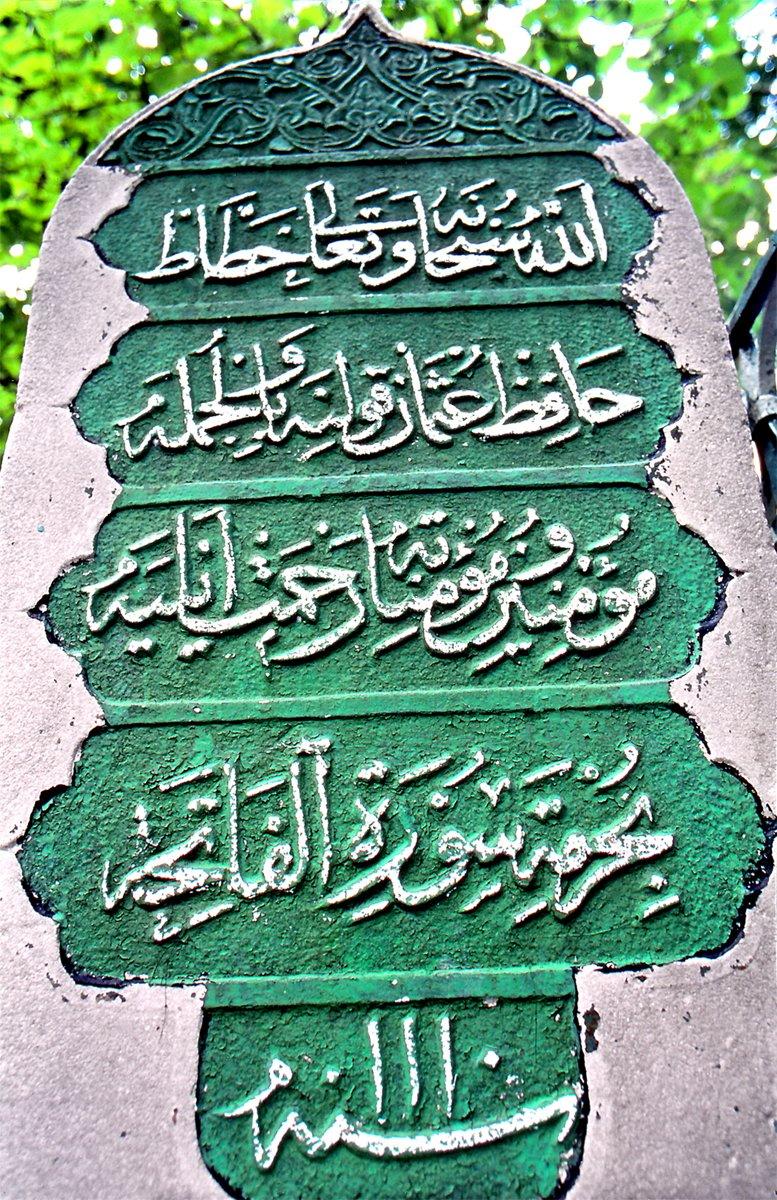 الله سبحانه وتعالى خطاط
حافظ عثمان قولنه وبالجمله
مؤمنين ومؤمناته رحمت ايليه
بحرمة سورة الفاتحه
سنه ١١١٠